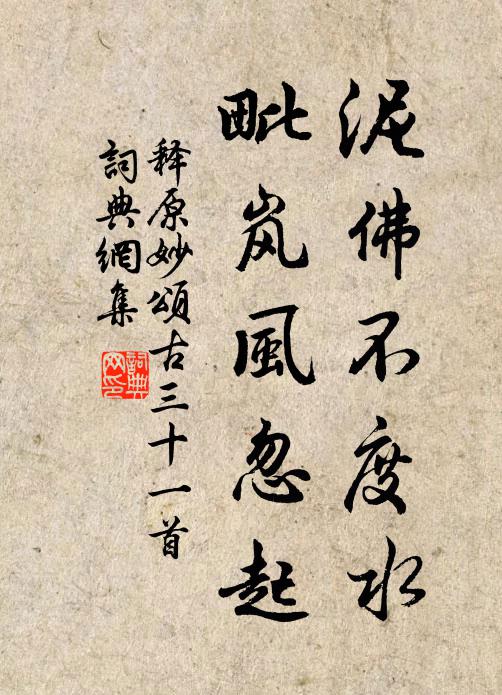 泥佛不度水
毗岚風忽起
释原妙頌古三十一首
詞典網集
詞典网印